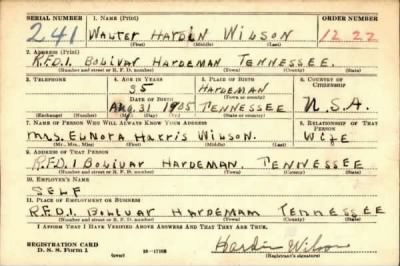 SERIAL NUMBER 1. NAME (Print) ORDER NUMBER
241 WALTER HARDIN WILSON 1222
(First) (Middle) (Last)
2. ADDRESS (Print)
R.F.D.1. BOLIVAR HARDEMAN TENNESSEE.
(Number and street or R. F. D. number) (Town) (County) (State)
3. TELEPHONE 4. AGE IN YEARS 5. PLACE OF BIRTH 6. COUNTRY OF CITIZENSHIP
35 HARDEMAN
DATE OF BIRTH (Town or county)
Aug. 31 1905 TENNESSEE U.S.A.
(Exchange) (Number) (Mo.) (Day) (Yr.) (State or country)
7. NAME OF PERSON WHO WILL ALWAYS KNOW YOUR ADDRESS 8. RELATIONSHIP OF THAT PERSON
MRS. ELNORA HARRIS WILSON. WIFE
(Mr., Mrs., Miss) (First) (Middle) (Last)
9. ADDRESS OF THAT PERSON
R.F.D.1 BOLIVAR HARDEMAN. TENNESSEE
(Number and street or R. F. D. number) (Town) (County) (State)
10. EMPLOYER'S NAME
SELF
11. PLACE OF EMPLOYMENT OR BUSINESS
R.F.D.1. BOLIVAR HARDEMAM TENNESSEE
(Number and street or R. F. D. number) (Town) (County) (State)
I AFFIRM THAT I HAVE VERIFIED ABOVE ANSWERS AND THAT THEY ARE TRUE.
Hardin Wilson
REGISTRATION CARD
D. S. S. Form 1 (over) (Registrant's signature)